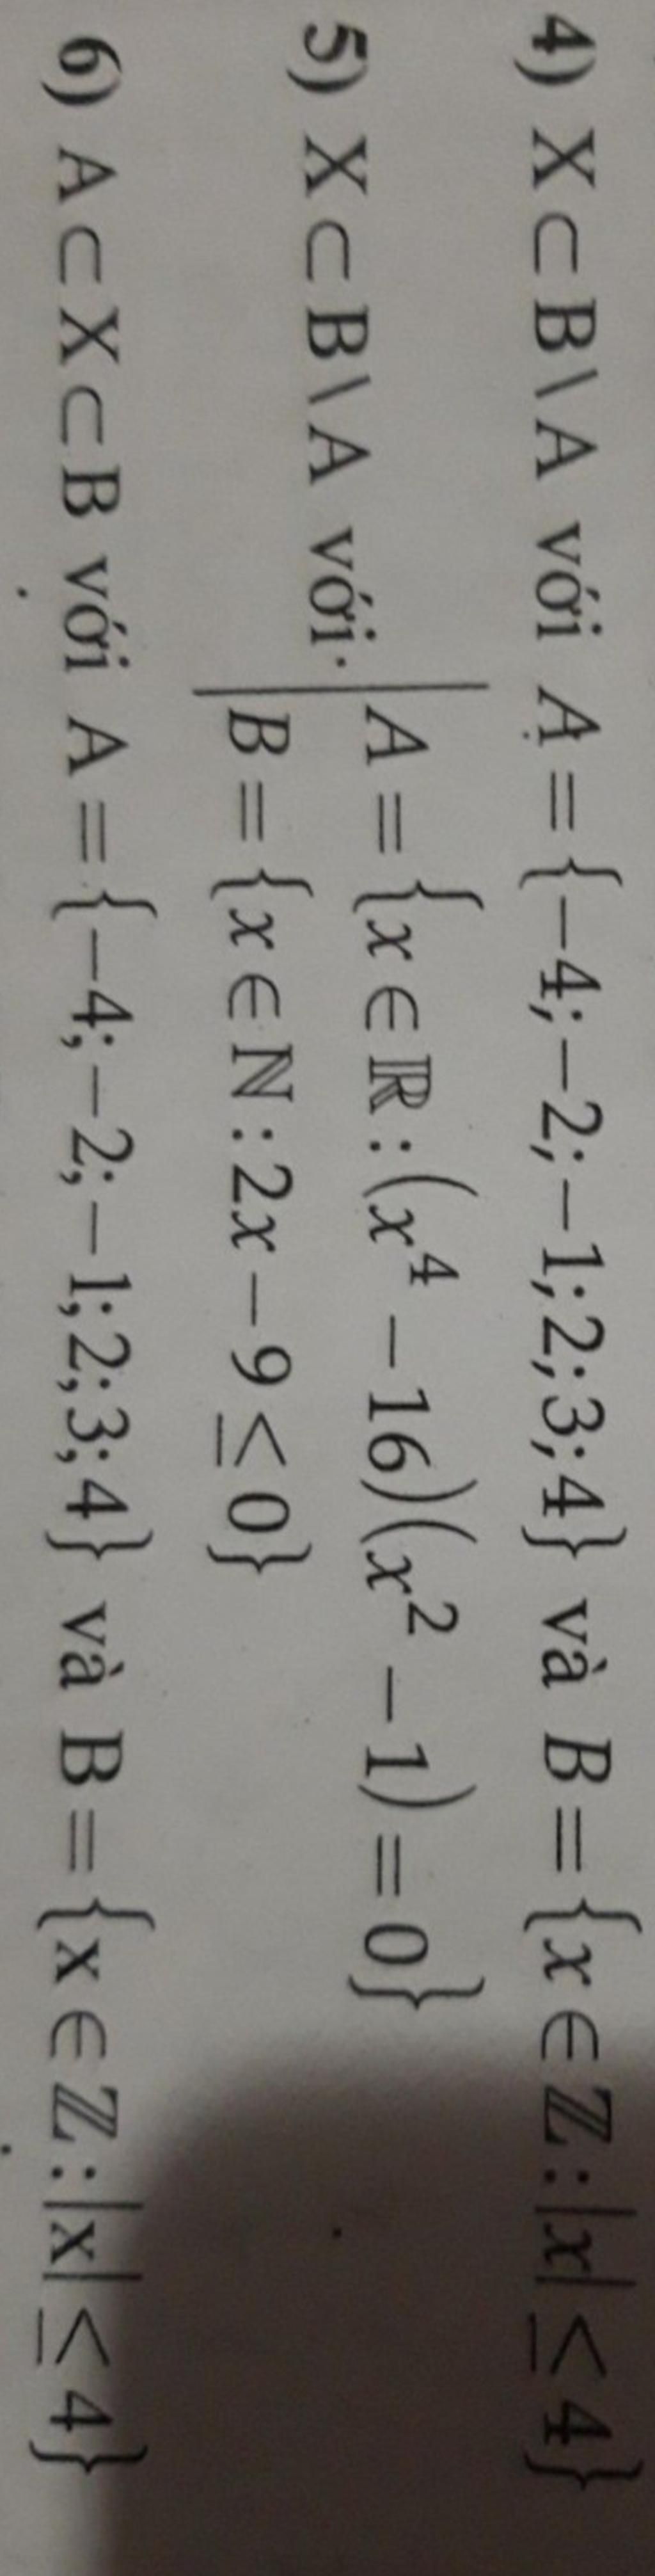 4) X ⊂ B \ A với A = {−4;−2;−1;2;3;4} và B = {x ∈ ℤ : |x| ≤ 4}
5) X ⊂ B \ A với:
A = {x ∈ ℝ : (x⁴ − 16)(x² − 1) = 0}
B = {x ∈ ℕ : 2x − 9 ≤ 0}
6) A ⊂ X ⊂ B với A = {−4;−2;−1;2;3;4} và B = {x ∈ ℤ : |x| ≤ 4}